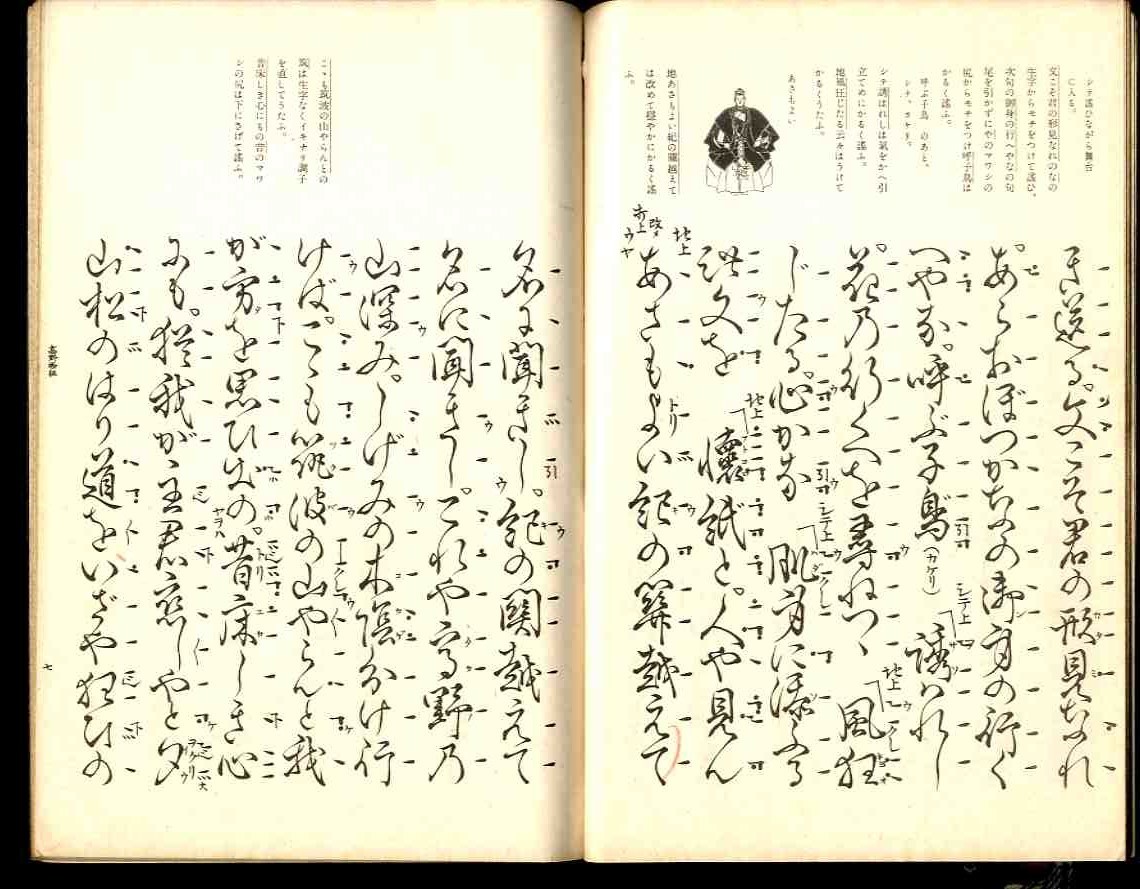 シテ謠ひながら舞台
に入る。
文こそ君の形見なれのなの
生字からモチをつけて謠ひ、
次句の御身の行へやなの句
尾を引かずにやのマワシの
尻からモチをつけ呼子鳥は
かるく謠ふ。
呼ぶ子鳥 のあと、
シテ、カケリ。
シテ誘はれしは氣をかへ引
立てめにかるく謠ふ。
地風狂じたる云々はうけて
かるくうたふ。
あさもよい
地あさもよい紀の關越えて
は改めて穩やかにかるく謠
ふ。
き送る。文こそ君の形見なれ
あらおぼつかなの御身の行く
へやな。呼ぶ子鳥(カケリ) シテ上 誘はれし
花乃行くへを尋ねつゝ 地上 風狂
じたる。心かな シテ上 肌身に添ふる
此文を 地上 懷紙と。人や見ん
地上 あさもよい紀の關越えて
こゝも筑波の山やらんとの
筑は生字なくイキナリ調子
を直してうたふ。
昔床しき心にもの昔のマワ
シの尻は下にさげて謠ふ。
名に聞きし。紀の関越えて
名に聞きし。これや高野乃
山深み。しげみの木陰分け行
けば。こゝも筑波の山やらんと我
が方を思ひ出の。昔床しき心
にも。猶我が主君恋しやと夕
山松のはり道をいざや狂ひの
高野物狂
七